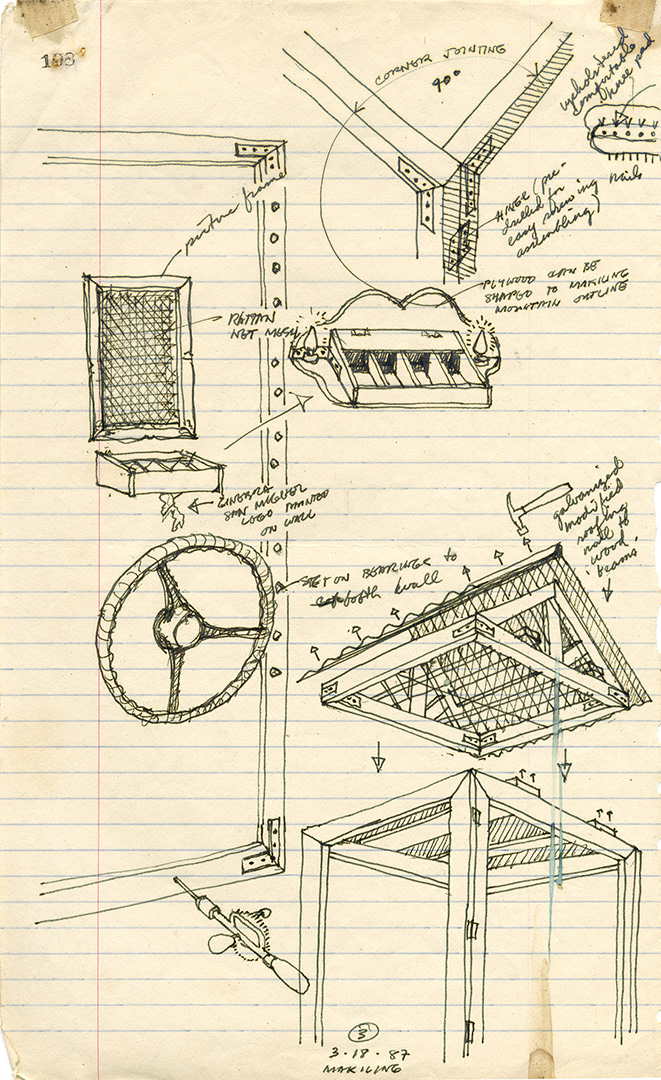 198
CORNER JOINTING
90°
upholstered
comfortable
knee pad
nails
picture frame
HINGE (pre-
drilled for
easy screwing
assembling)
PLYWOOD CAN BE
SHAPED TO MAKILING
MOUNTAIN OUTLINE
RATTAN
NET MESH
GINEBRA
SAN MIGUEL
LOGO PAINTED
ON WALL
galvanized
modified
roofing
nail to
wood
beams
SET ON BEARINGS to
booth wall
3
3·18·87
MAKILING